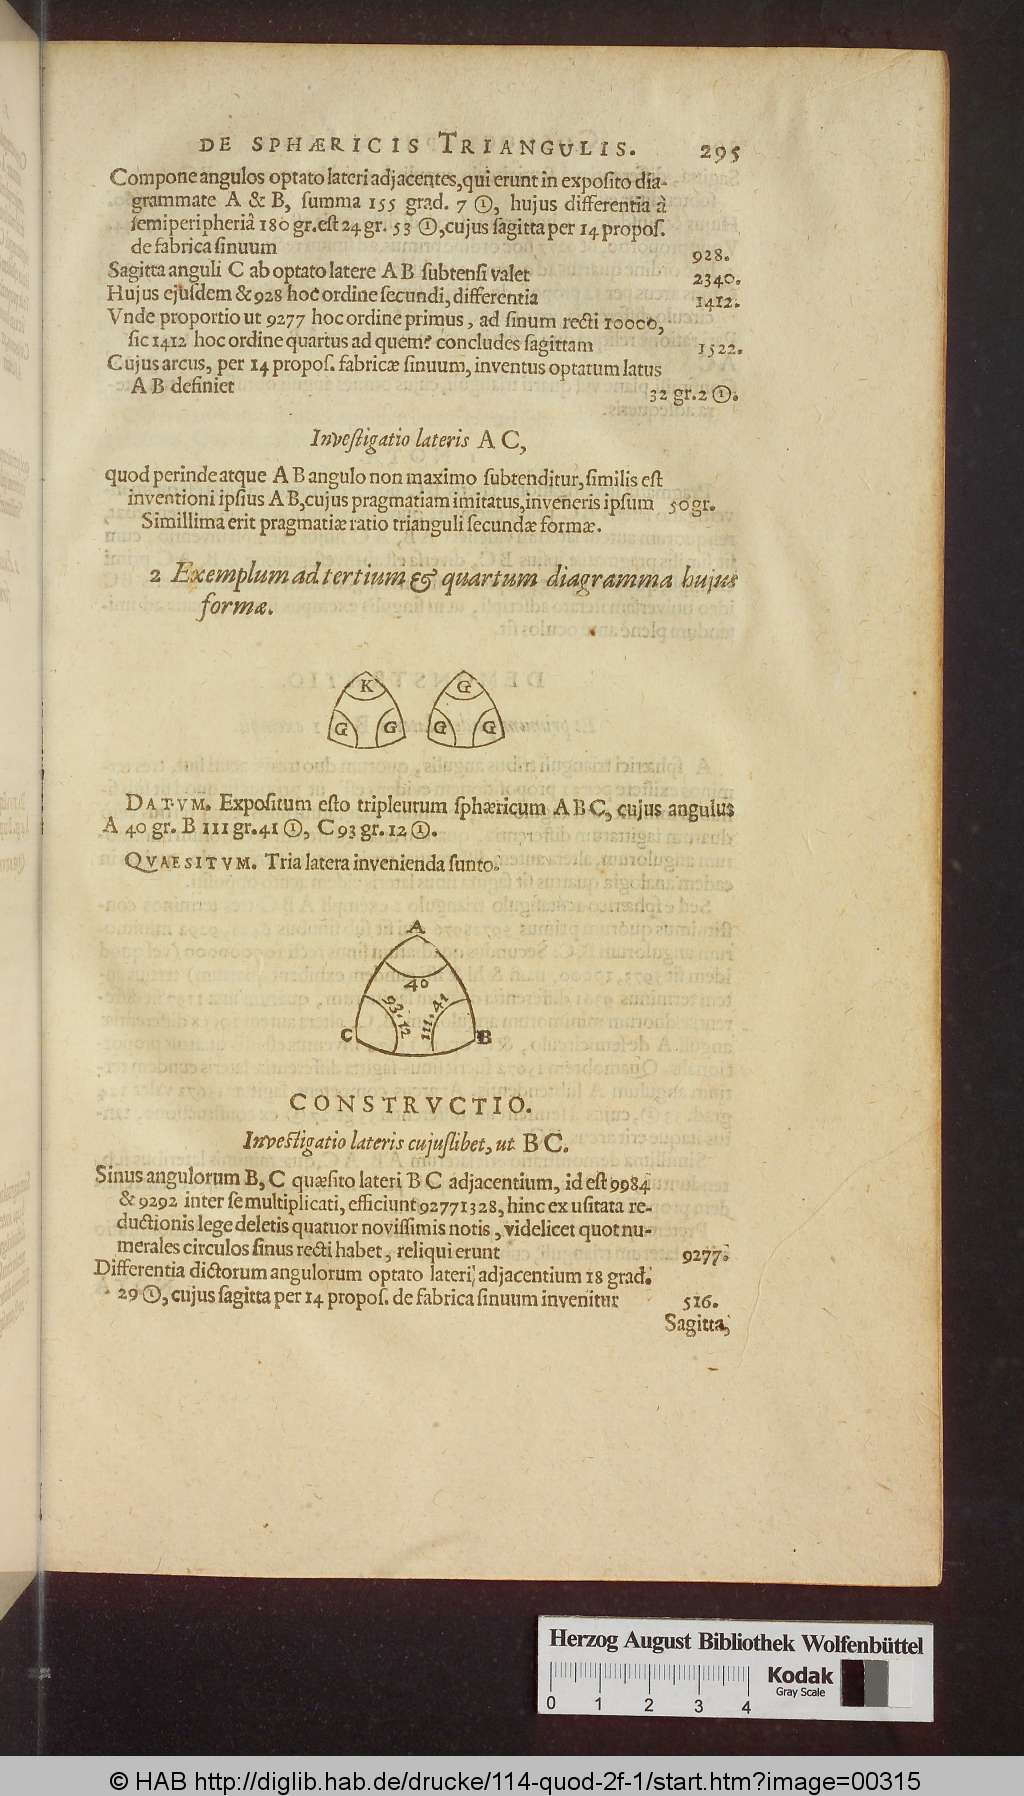 DE SPHÆRICIS TRIANGULIS. 295
Compone angulos optato lateri adjacentes, qui erunt in exposito dia-
grammate A & B, summa 155 grad. 7 ①, hujus differentia à
semiperipheriâ 180 gr. est 24 gr. 53 ①, cujus sagitta per 14 propos.
de fabrica sinuum 928.
Sagitta anguli C ab optato latere A B subtensi valet 2340.
Hujus ejusdem & 928 hoc ordine secundi, differentia 1412.
Vnde proportio ut 9277 hoc ordine primus, ad sinum recti 10000,
sic 1412 hoc ordine quartus ad quem? concludes sagittam 1522.
Cujus arcus, per 14 propos. fabricæ sinuum, inventus optatum latus
A B definiet 32 gr. 2 ①.
Investigatio lateris A C,
quod perinde atque A B angulo non maximo subtenditur, similis est
inventioni ipsius A B, cujus pragmatiam imitatus, inveneris ipsum 50 gr.
Simillima erit pragmatiæ ratio trianguli secundæ formæ.
2 Exemplum ad tertium & quartum diagramma hujus
formæ.
K G
G G G G
DATVM. Expositum esto tripleurum sphæricum A B C, cujus angulus
A 40 gr. B 111 gr. 41 ①, C 93 gr. 12 ①.
QVAESITVM. Tria latera invenienda sunto.
A
40
93.12 111.41
C B
CONSTRVCTIO.
Investigatio lateris cujuslibet, ut B C.
Sinus angulorum B, C quæsito lateri B C adjacentium, id est 9984
& 9292 inter se multiplicati, efficiunt 92771328, hinc ex usitata re-
ductionis lege deletis quatuor novissimis notis, videlicet quot nu-
merales circulos sinus recti habet, reliqui erunt 9277.
Differentia dictorum angulorum optato lateri adjacentium 18 grad.
29 ①, cujus sagitta per 14 propos. de fabrica sinuum invenitur 516.
Sagitta
Herzog August Bibliothek Wolfenbüttel
Kodak
Gray Scale
0 1 2 3 4
© HAB http://diglib.hab.de/drucke/114-quod-2f-1/start.htm?image=00315